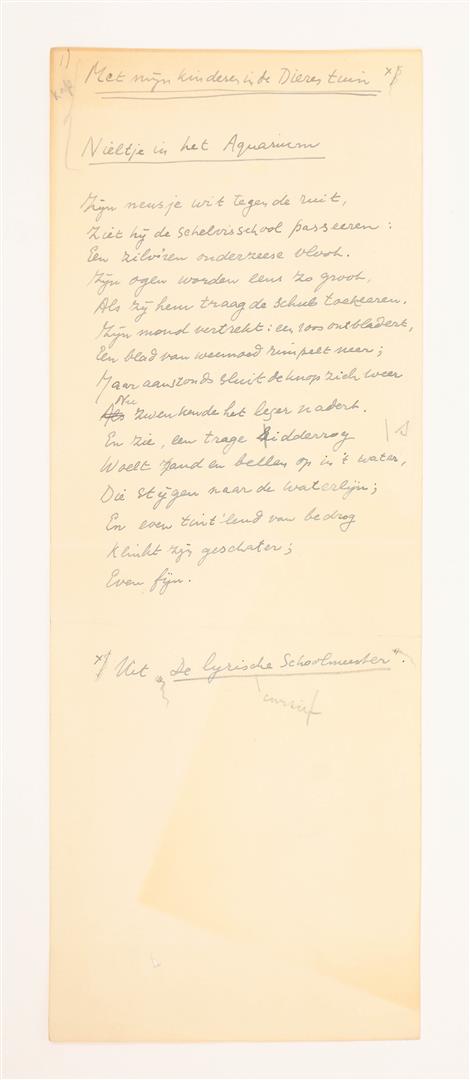 1)
Kop
Met mijn kinderen in de Dierentuin x)
Nieltje in het Aquarium
Zijn neusje wit tegen de ruit,
Ziet hij de schelvisschool passeeren:
Een zilv'ren onderzeese vloot.
Zijn ogen worden eens zo groot,
Als zij hem traag de schub toekeeren.
Zijn mond vertrekt: een roos ontbladert,
Een blad van weemoed rimpelt neer;
Maar aanstonds sluit de knop zich weer
Nu
Als zwenkende het leger nadert.
En zie, een trage sidderrog
Woelt zand en bellen op in 't water,
Die stijgen naar de waterlijn;
En even tint'lend van bedrog
Klinkt zijn geschater;
Even fijn.
x) Uit „De lyrische Schoolmeester".
cursief